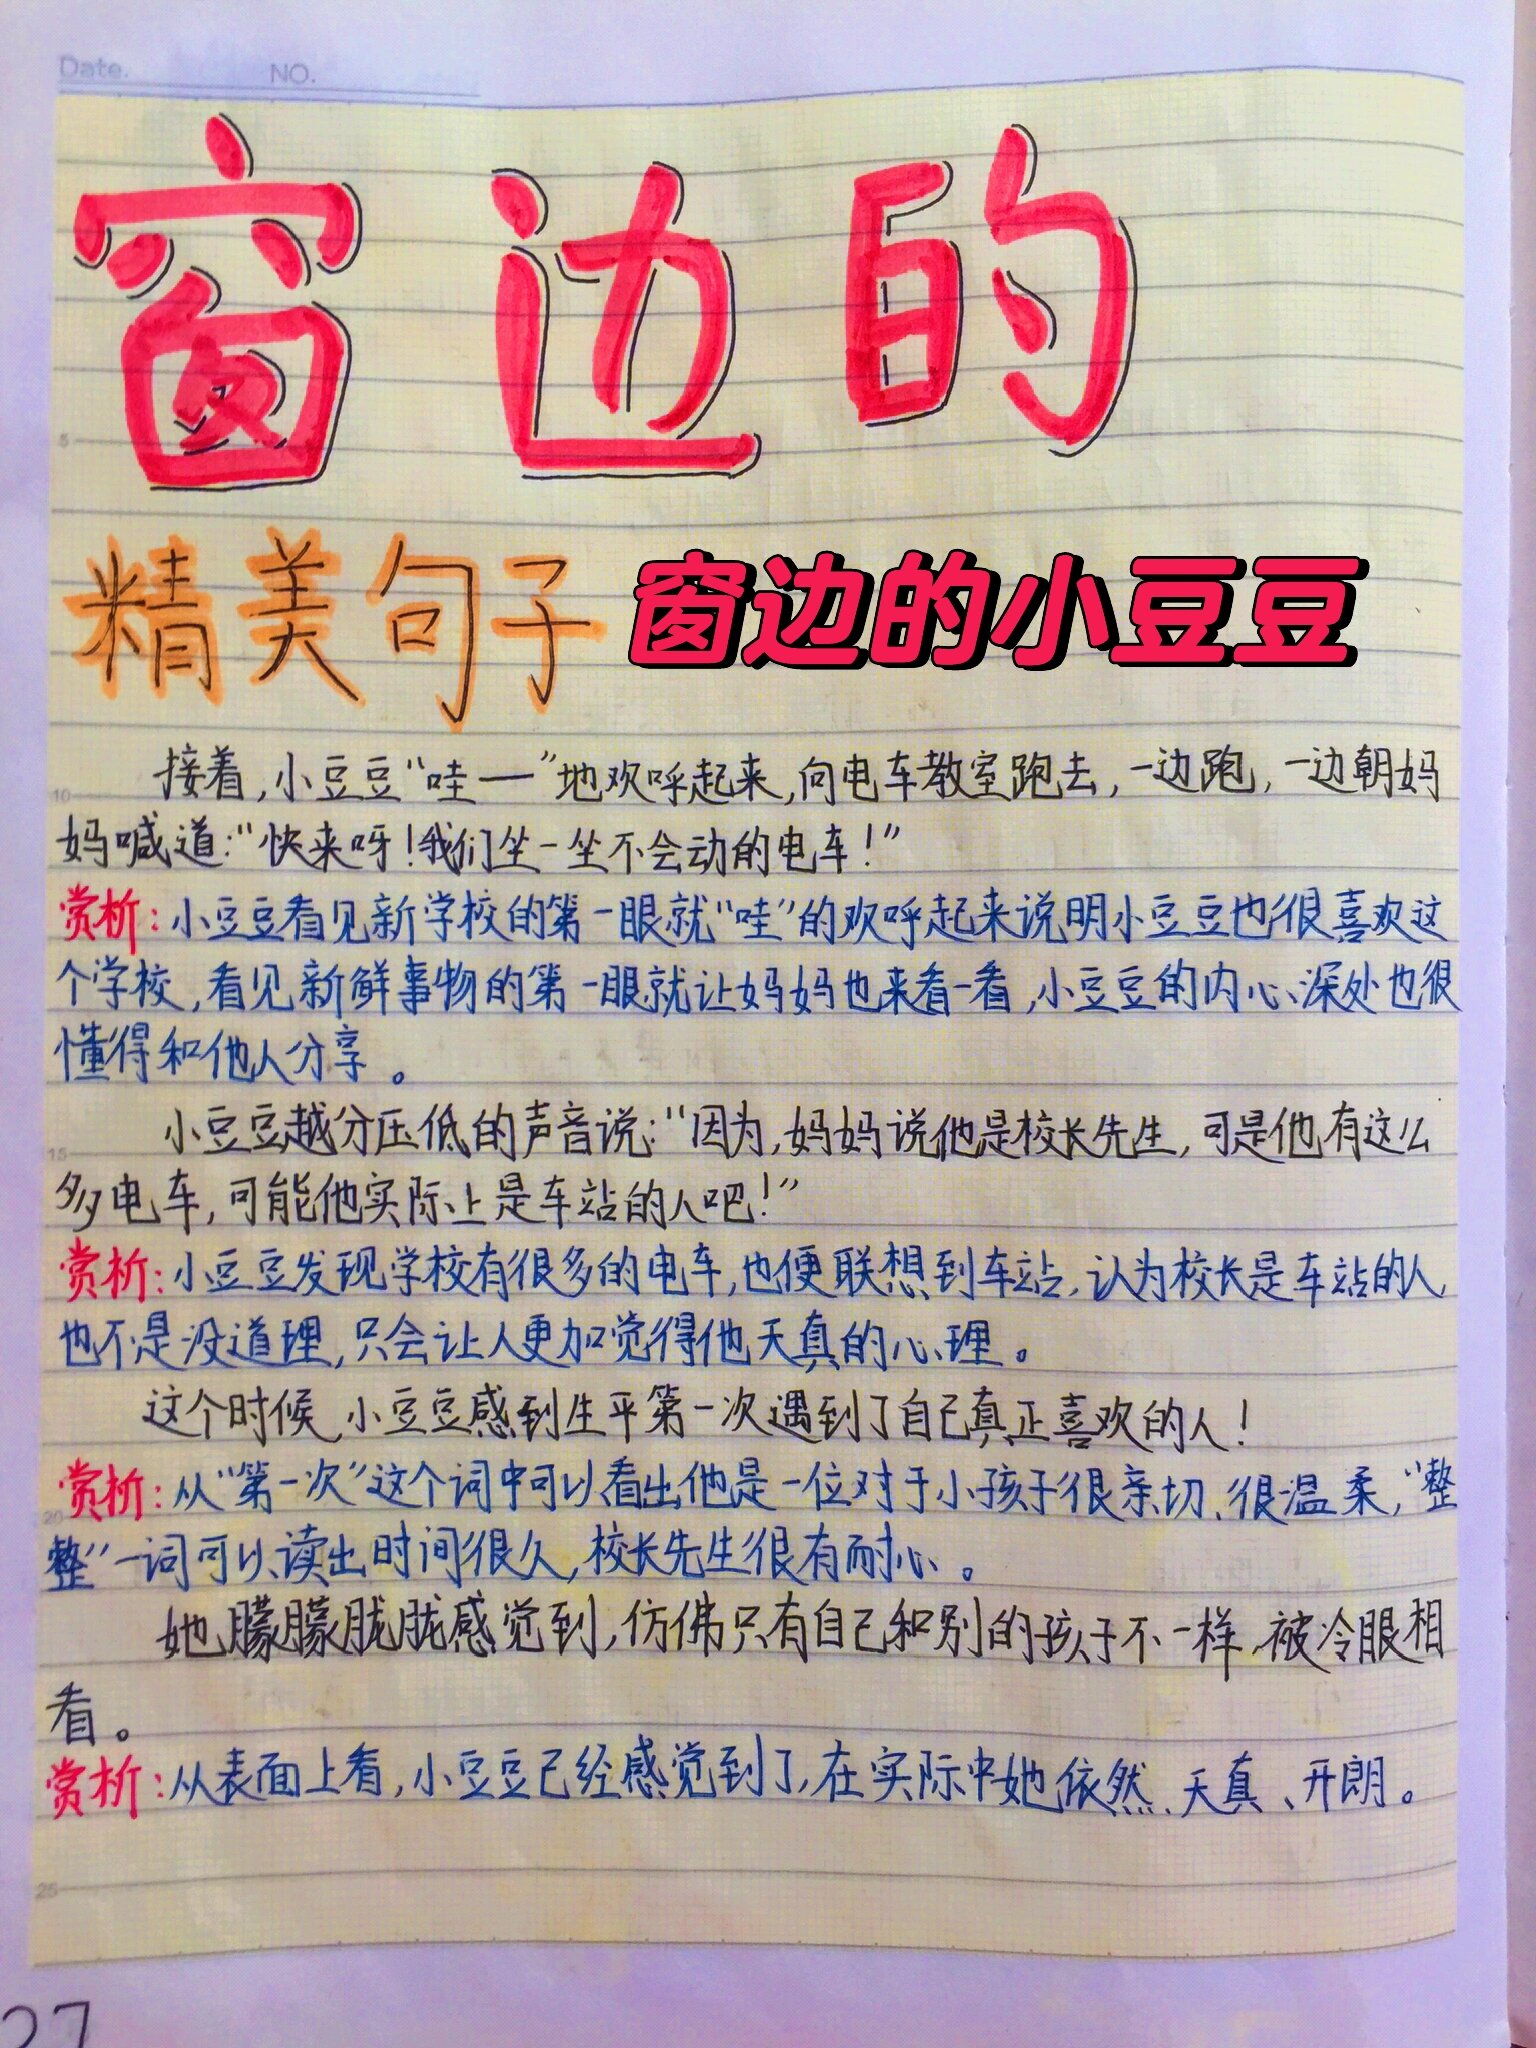 Date. NO.
窗边的
精美句子 窗边的小豆豆
接着,小豆豆“哇一”地欢呼起来,向电车教室跑去,一边跑,一边朝妈
妈喊道:“快来呀!我们坐一坐不会动的电车!”
赏析:小豆豆看见新学校的第一眼就“哇”的欢呼起来说明小豆豆也很喜欢这
个学校,看见新鲜事物的第一眼就让妈妈也来看一看,小豆豆的内心深处也很
懂得和他人分享。
小豆豆越分压低的声音说:“因为,妈妈说他是校长先生,可是他有这么
多电车,可能他实际上是车站的人吧!”
赏析:小豆豆发现学校有很多的电车,也便联想到车站,认为校长是车站的人,
也不是没道理,只会让人更加觉得他天真的心理。
这个时候,小豆豆感到生平第一次遇到了自己真正喜欢的人!
赏析:从“第一次”这个词中可以看出他是一位对于小孩子很亲切、很温柔,“整
整”一词可以读出时间很久,校长先生很有耐心。
她朦朦胧胧感觉到,仿佛只有自己和别的孩子不一样,被冷眼相
看。
赏析:从表面上看,小豆豆已经感觉到了,在实际中她依然、天真、开朗。
5
10
15
20
25
27